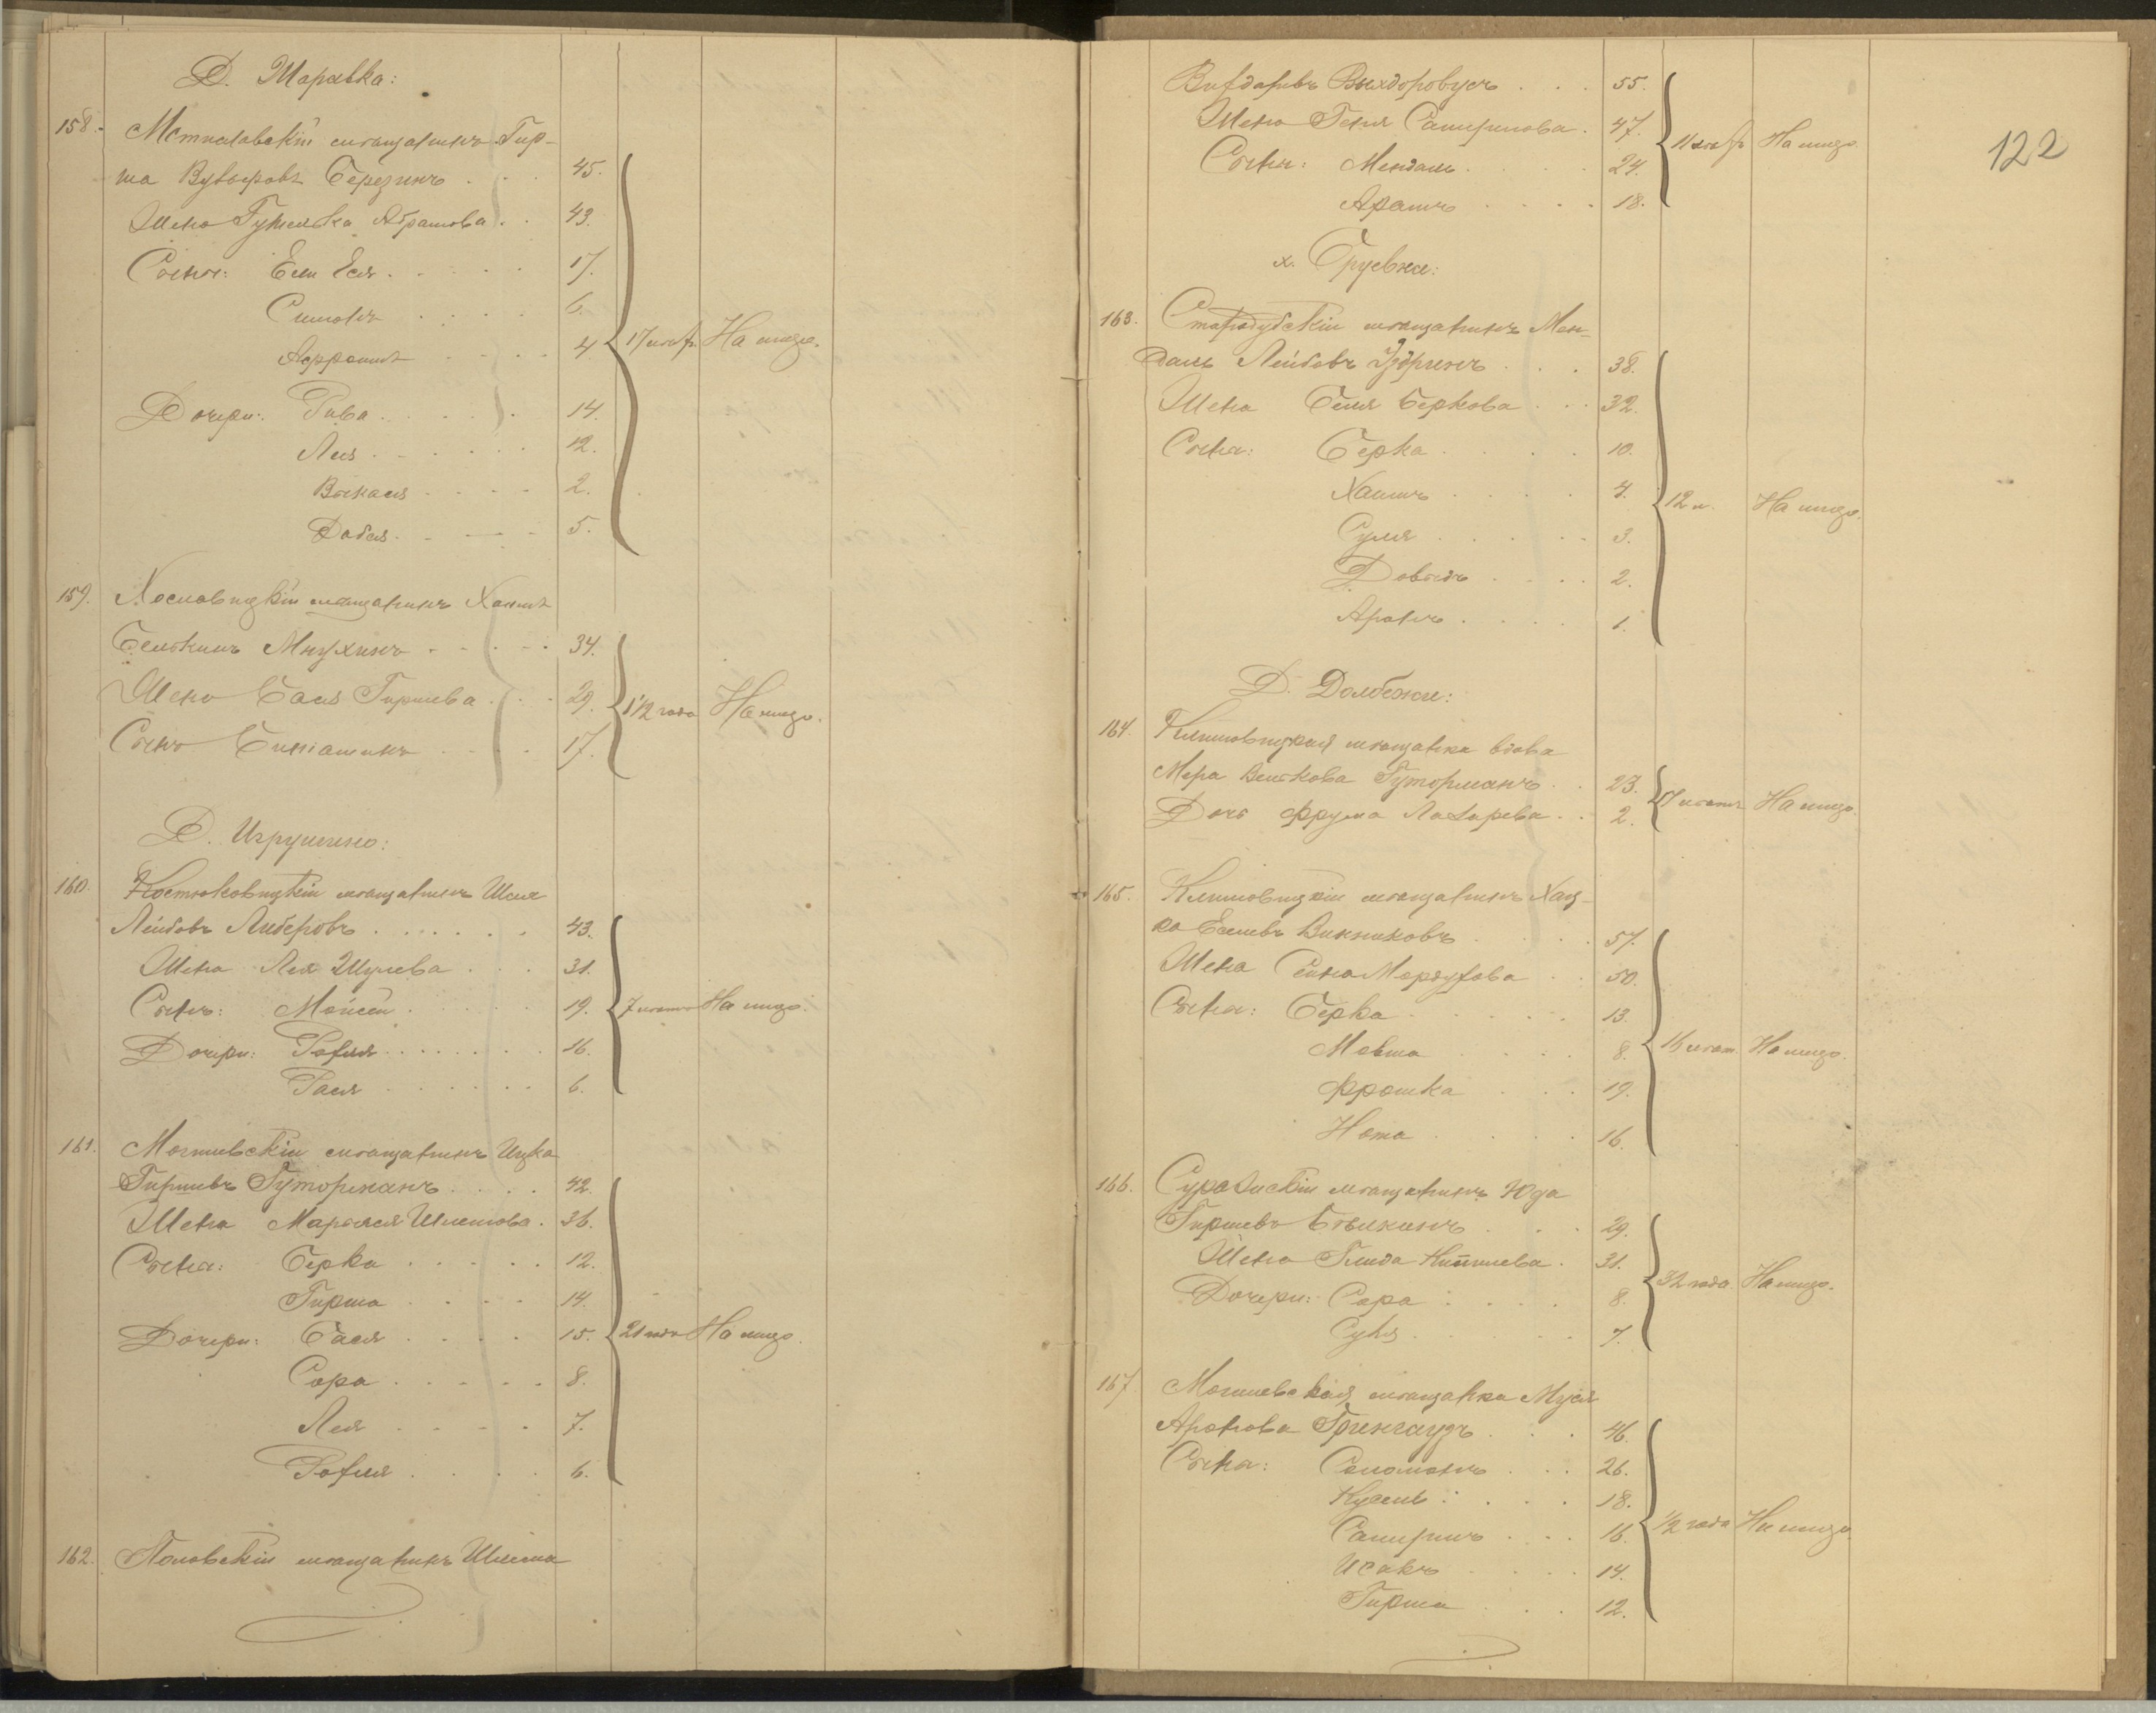 Д. Шаравка:
158. Мстиславскій мѣщанинъ Гир-
ша Вульфовъ Березинъ . . . 45.
Жена Гутелька Абрамова . . 43.
Сыны: Ели Еся . . . . . 17.
Симонъ . . . . 6.
Аффроимъ . . . . 4. На лицо.
Дочери: Рива . . . . . 14.
Лея . . . . . . 12.
Выхася . . . . 2.
Добся . . . . 5.
159. Хословицкій мѣщанинъ Хаимъ
Бенькинъ Мнухинъ . . . . 34.
Жена Бася Гиршева . . . 29. 1 1/2 года На лицо.
Сынъ Биніаминъ . . . . 17.
Д. Игрушино:
160. Костюковицкій мѣщанинъ Шлія
Лейбовъ Либеровъ . . . . . . 43.
Жена Лея Шулева . . . 31.
Сынъ: Мойсей . . . . . 19. 7 На лицо.
Дочери: Рафля . . . . . . . 16.
Рася . . . . . . 6.
161. Могилевскій мѣщанинъ Ицка
Гиршевъ Гуторманъ . . . . 42.
Жена Марьяся Шлемова . 36.
Сына: Берка . . . . . 12.
Гирша . . . . 14.
Дочери: Бася . . . . 15. 21 На лицо.
Сора . . . . . 8.
Лея . . . . 7.
Рафля . . . . 6.
162. мѣщанинъ Шлема
Выхдоровусъ . . . 55.
Жена Геня Самуилова . 47. На лицо. 122
Сыны: Мендаль . . . . 24.
Арамъ . . . . 18.
х. Груевка:
163. Стародубскій мѣщанинъ Мен-
даль Лейбовъ . . . 38.
Жена Беля Беркова . . . 32.
Сына: Берка . . . . 10.
Хаимъ . . . . 4. 12 л. На лицо.
Суля . . . . . 3.
Довыдъ . . . . 2.
Аронъ . . . . 1.
Д. Долбежи:
164. Климовицкая мѣщанка вдова
Мера Велькова Гуторманъ . . 23. На лицо.
Дочь Фрума Лазарева . . 2.
165. Климовицкій мѣщанинъ Хац-
ка Еселевъ Винниковъ . . . . 57.
Жена Сейна Мордухова . . 50.
Сына: Берка . . . . . . 13.
Мовша . . . . 8. На лицо.
Фрошка . . . 19.
Нота . . . . 16.
166. Суражскій мѣщанинъ Юда
Гиршевъ Бѣлкинъ . . . 29.
Жена Глида . 31. 32 года На лицо.
Дочери: Сора . . . . 8.
Суня . . . . . . 7.
167. Могилевская мѣщанка Муся
Аронова Грингаузъ . . . 46.
Сына: Соломонъ . . . 26.
Кусель . . . . 18. 1/2 года На лицо.
Самуилъ . . . 16.
Исакъ . . . . 14.
Гирша . . . 12.